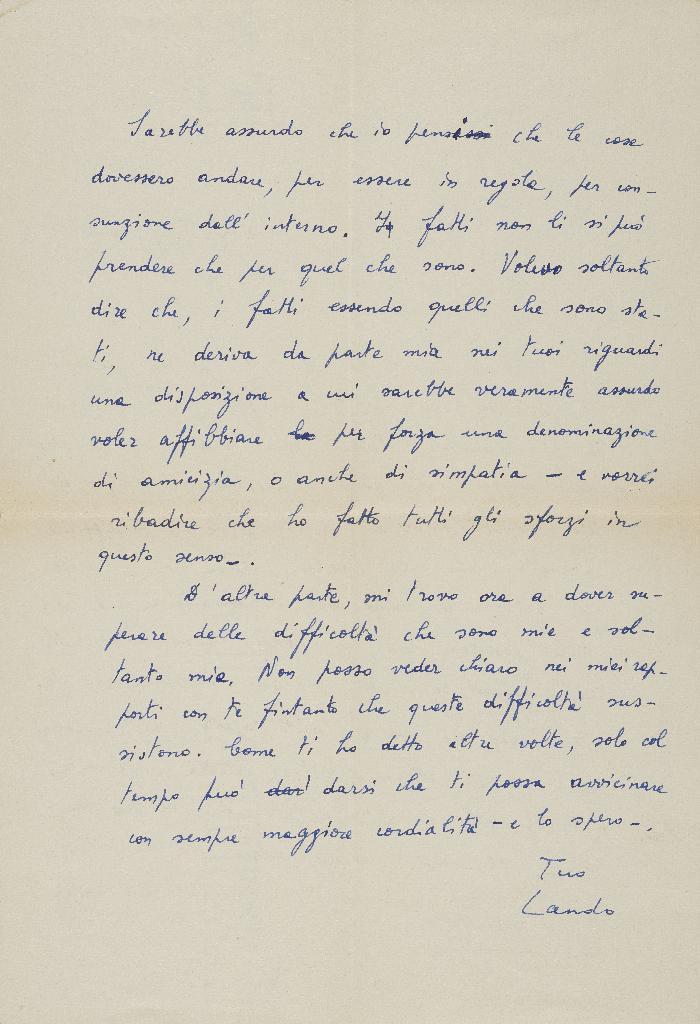 Sarebbe assurdo che io pensassi che le cose
dovessero andare, per essere in regola, per con-
sunzione dall' interno. I fatti non li si può
prendere che per quel che sono. Volevo soltanto
dire che, i fatti essendo quelli che sono sta-
ti, ne deriva da parte mia nei tuoi riguardi
una disposizione a cui sarebbe veramente assurdo
voler affibbiare la per forza una denominazione
di amicizia, o anche di simpatia — e vorrei
ribadire che ho fatto tutti gli sforzi in
questo senso —.
D'altra parte, mi trovo ora a dover su-
perare delle difficoltà che sono mie e sol-
tanto mia. Non posso veder chiaro nei miei rap-
porti con te fintanto che queste difficoltà sus-
sistono. Come ti ho detto altre volte, solo col
tempo può darsi che ti possa avvicinare
con sempre maggiore cordialità — e lo spero —.
Tuo
Lando